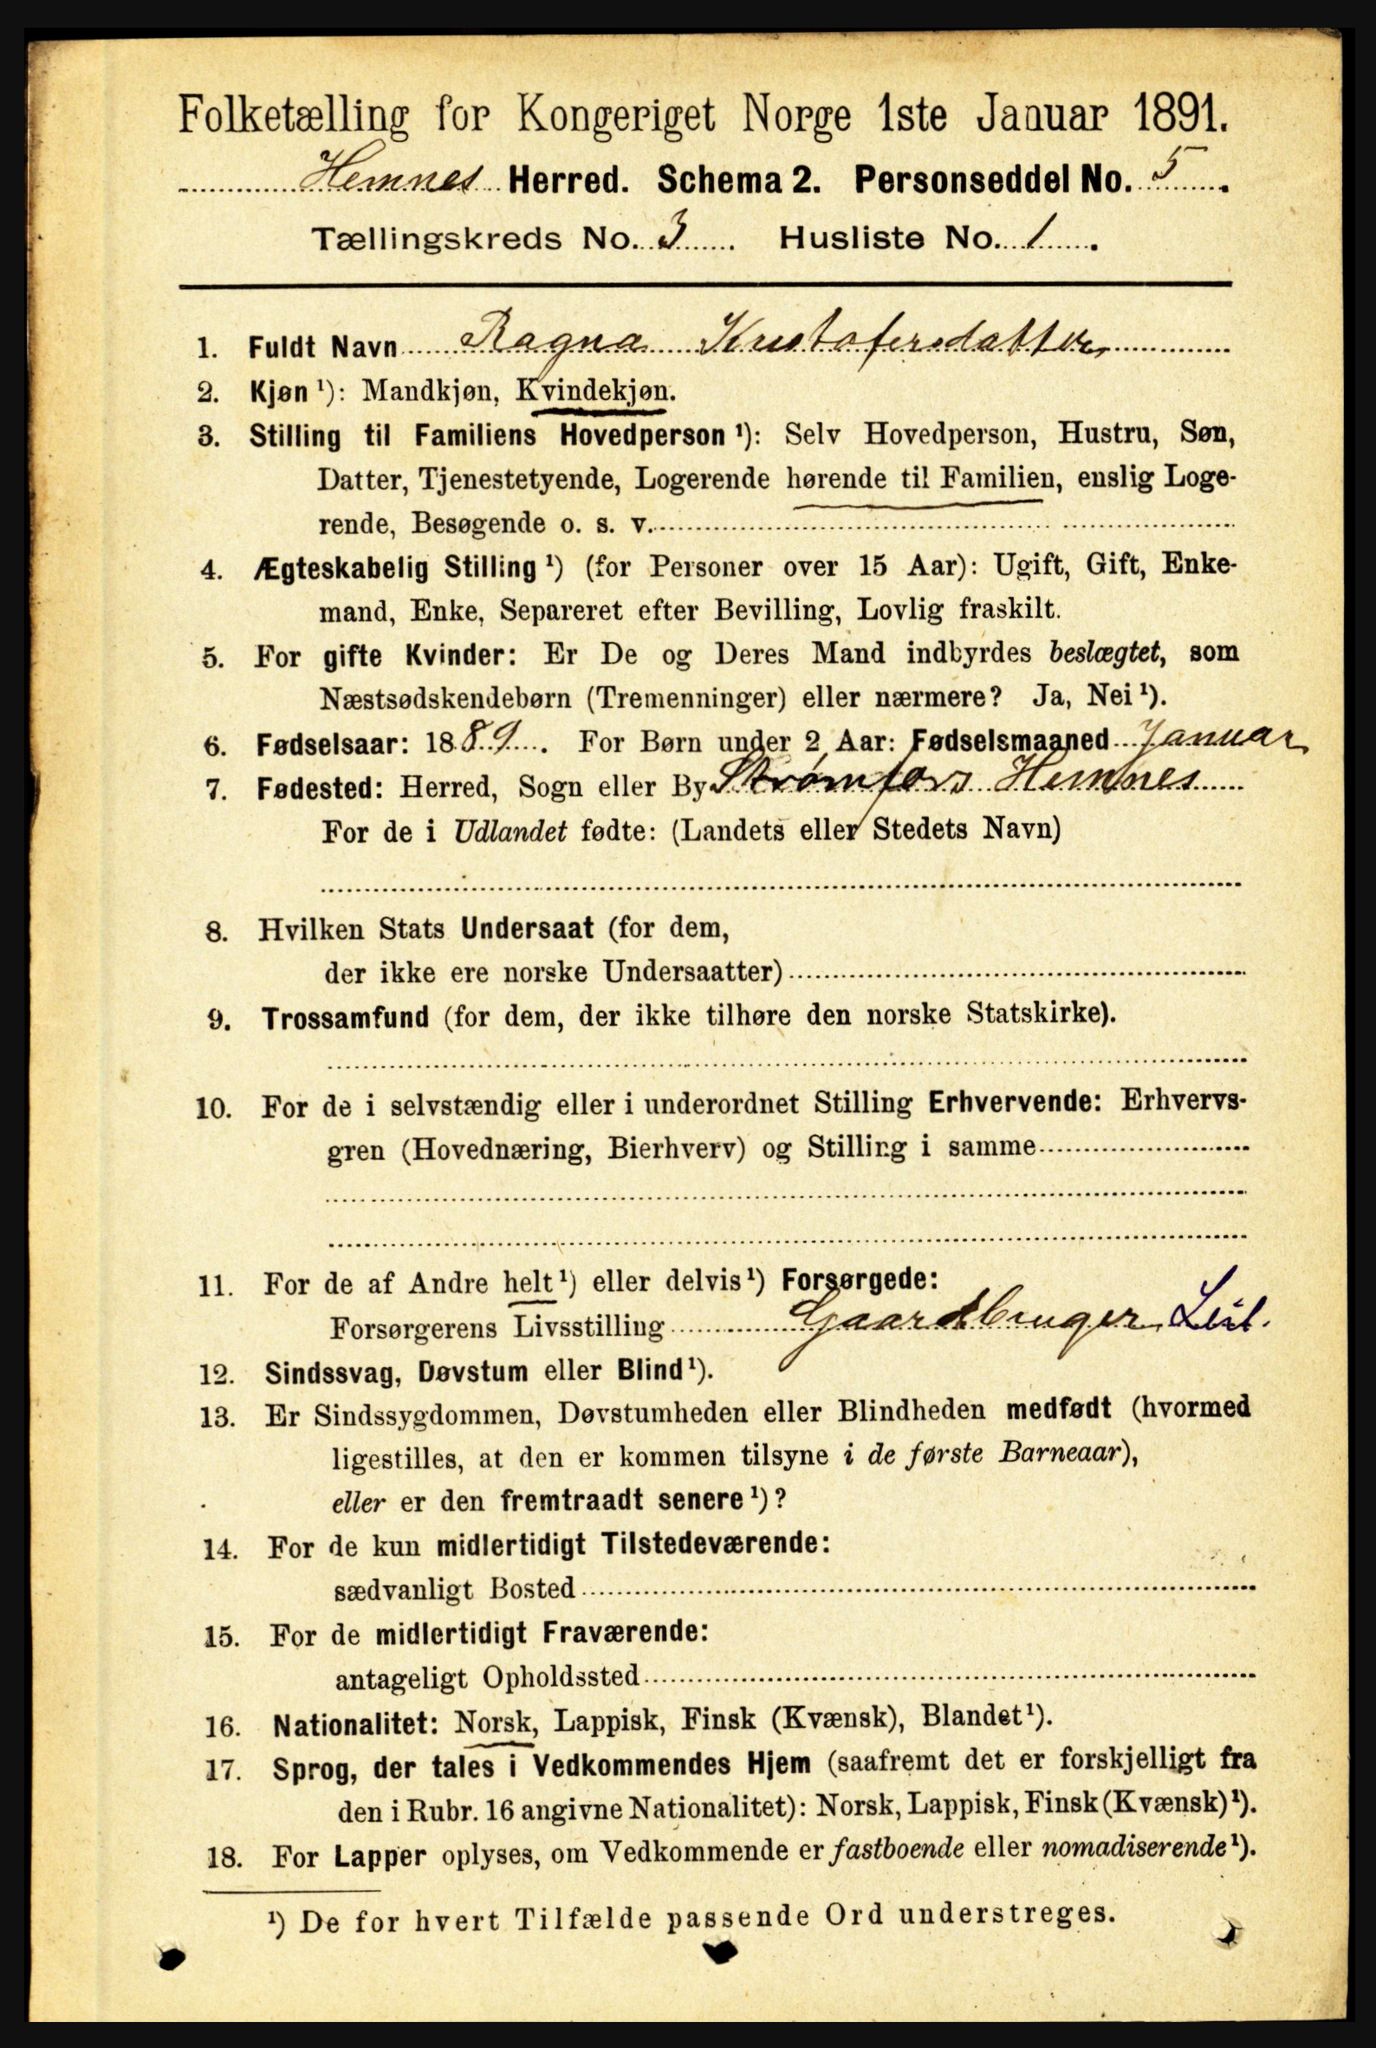 Folketælling for Kongeriget Norge 1ste Januar 1891.
Hemnes Herred. Schema 2. Personseddel No. 5.
Tællingskreds No. 3. Husliste No. 1.
1. Fuldt Navn Ragna Kristofersdatter
2. Kjøn ¹): Mandkjøn, Kvindekjøn.
3. Stilling til Familiens Hovedperson ¹): Selv Hovedperson, Hustru, Søn,
Datter, Tjenestetyende, Logerende hørende til Familien, enslig Loge-
rende, Besøgende o. s. v.
4. Ægteskabelig Stilling ¹) (for Personer over 15 Aar): Ugift, Gift, Enke-
mand, Enke, Separeret efter Bevilling, Lovlig fraskilt.
5. For gifte Kvinder: Er De og Deres Mand indbyrdes beslægtet, som
Næstsødskendebørn (Tremenninger) eller nærmere? Ja, Nei ¹).
6. Fødselsaar: 1889. For Børn under 2 Aar: Fødselsmaaned Januar
7. Fødested: Herred, Sogn eller By Strømfors Hemnes
For de i Udlandet fødte: (Landets eller Stedets Navn)
8. Hvilken Stats Undersaat (for dem,
der ikke ere norske Undersaatter)
9. Trossamfund (for dem, der ikke tilhøre den norske Statskirke).
10. For de i selvstændig eller i underordnet Stilling Erhvervende: Erhvervs-
gren (Hovednæring, Bierhverv) og Stilling i samme
11. For de af Andre helt ¹) eller delvis ¹) Forsørgede:
Forsørgerens Livsstilling Gaardbruger, Leil.
12. Sindssvag, Døvstum eller Blind ¹).
13. Er Sindssygdommen, Døvstumheden eller Blindheden medfødt (hvormed
ligestilles, at den er kommen tilsyne i de første Barneaar),
eller er den fremtraadt senere ¹)?
14. For de kun midlertidigt Tilstedeværende:
sædvanligt Bosted
15. For de midlertidigt Fraværende:
antageligt Opholdssted
16. Nationalitet: Norsk, Lappisk, Finsk (Kvænsk), Blandet ¹).
17. Sprog, der tales i Vedkommendes Hjem (saafremt det er forskjelligt fra
den i Rubr. 16 angivne Nationalitet): Norsk, Lappisk, Finsk (Kvænsk) ¹).
18. For Lapper oplyses, om Vedkommende er fastboende eller nomadiserende ¹).
¹) De for hvert Tilfælde passende Ord understreges.